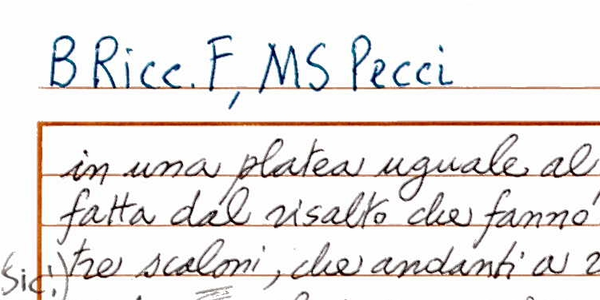 B Ricc. F, MS Pecci
in una platea uguale al
fatta dal risalto che fanno
Sic!) tre scaloni, che andanti a